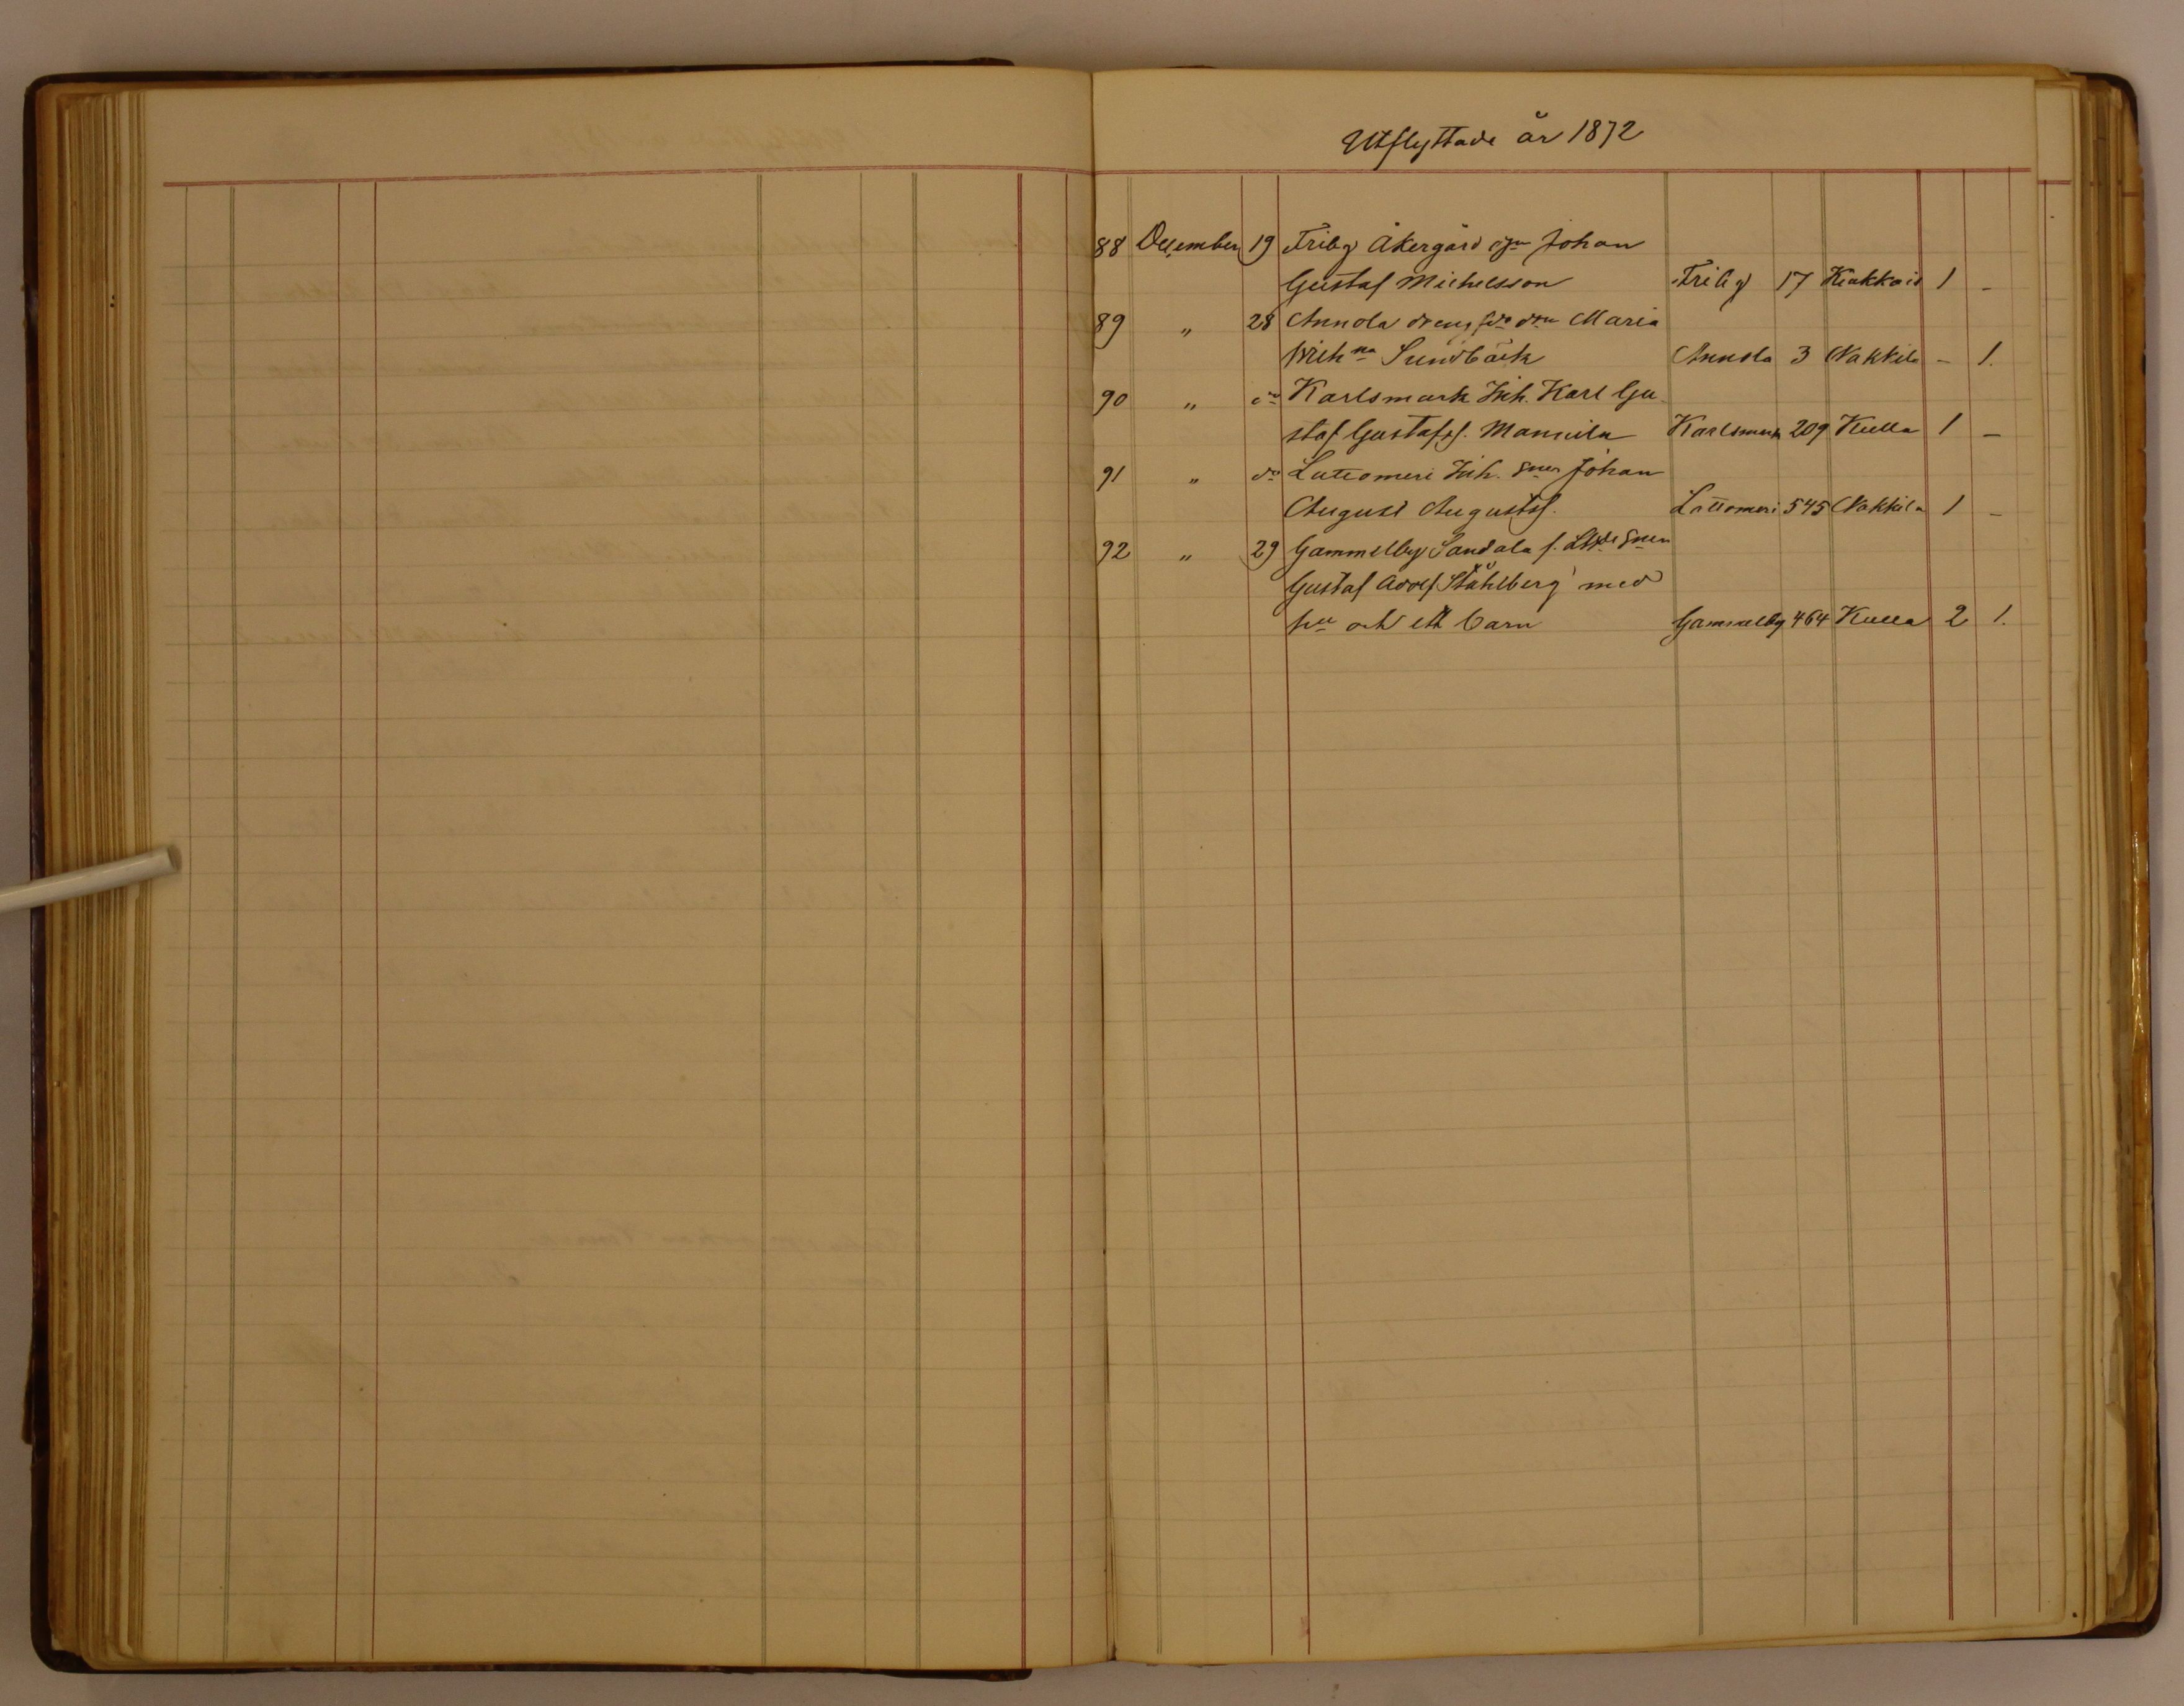 Utflyttade år 1872
88 December 19 Friby Åkergård Johan
Gustaf Michelsson Friby 17 Kiukkais 1 -
89 " 28 Annola Maria
Wilh:na Sundbäck Annola 3 Nakkila - 1.
90 " do Karlsmark Inh. Karl Gu-
staf Gustafss. Mannila Karlsmark 209 Kulla 1 -
91 " do Lattomeri Inh. Johan
August Augustss. Lattomeri 545 Nakkila 1 -
92 " 29 Gammelby Sandala f.
Gustaf Adolf Ståhlberg med
hu och ett barn Gammelby 464 Kulla 2 1.